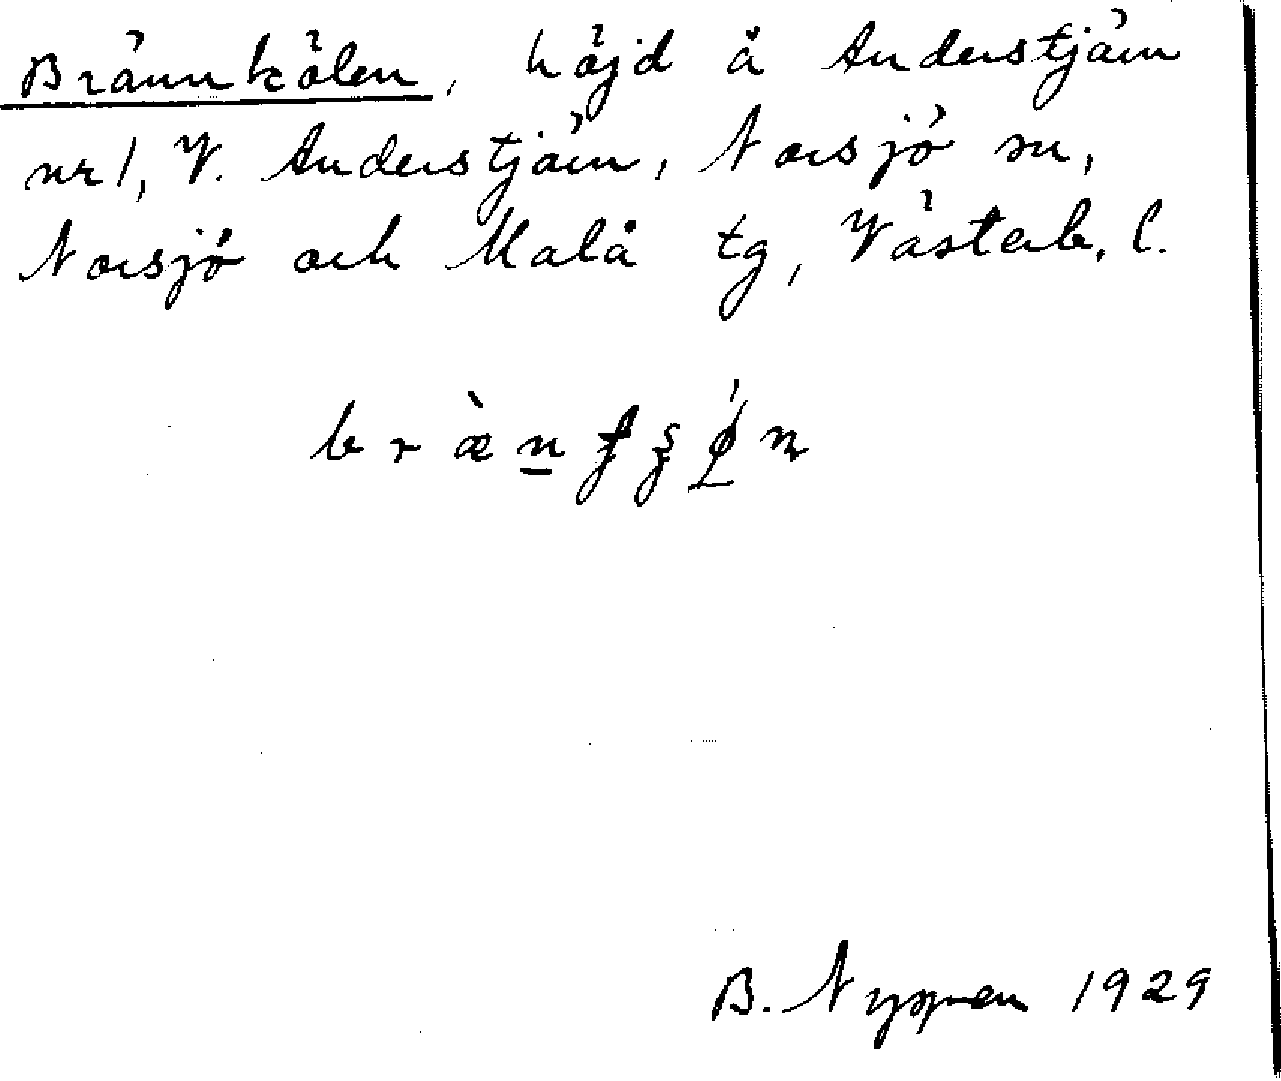 Brännkölen, höjd å Anderstjärn
nr 1, V. Anderstjärn, Norsjö sn,
Norsjö och Malå tg, Västerb. l.
B. 1929